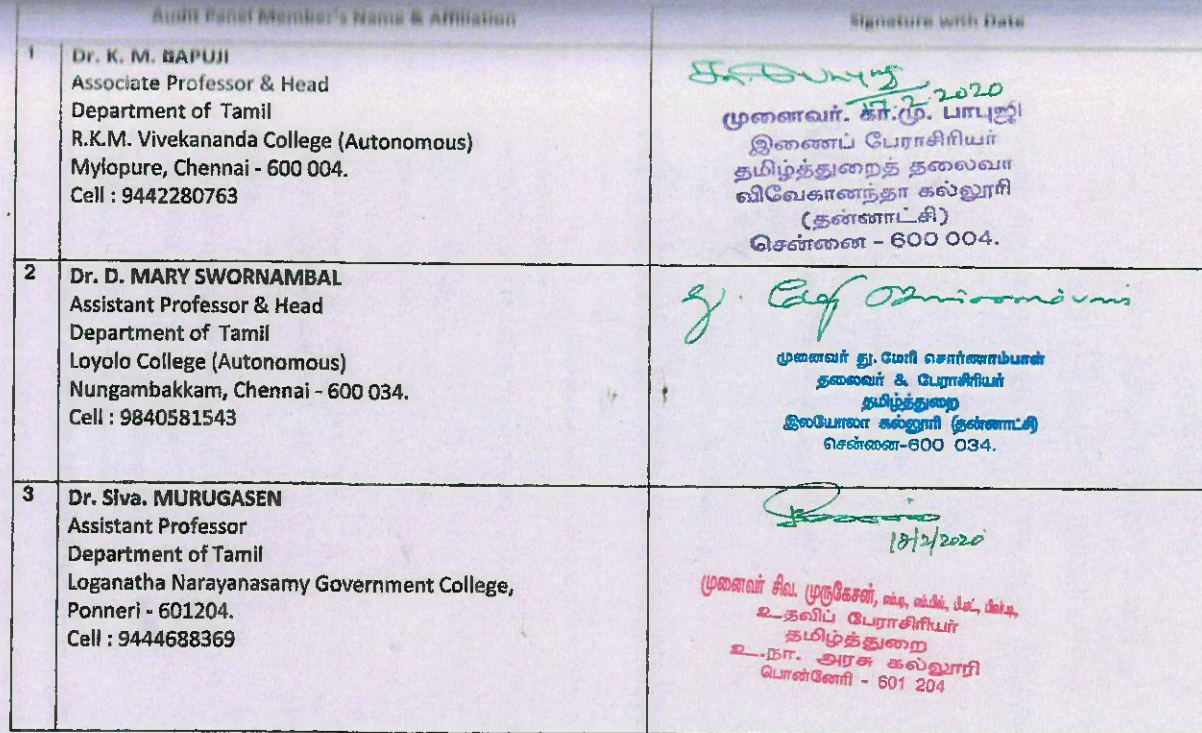 Audit Panel Member's Name & Affiliation
Signature with Date
1
Dr. K. M. BAPUJI
Associate Professor & Head
Department of Tamil
R.K.M. Vivekananda College (Autonomous)
Mylopure, Chennai - 600 004.
Cell : 9442280763
17.2.2020
முனைவர். கா.மு. பாபுஜி
இணைப் பேராசிரியர்
தமிழ்த்துறைத் தலைவர்
விவேகானந்தா கல்லூரி
(தன்னாட்சி)
சென்னை - 600 004.
2
Dr. D. MARY SWORNAMBAL
Assistant Professor & Head
Department of Tamil
Loyolo College (Autonomous)
Nungambakkam, Chennai - 600 034.
Cell : 9840581543
முனைவர் து. மேரி சொர்ணாம்பாள்
தலைவர் & பேராசிரியர்
தமிழ்த்துறை
இலயோலா கல்லூரி (தன்னாட்சி)
சென்னை-600 034.
3
Dr. Siva. MURUGASEN
Assistant Professor
Department of Tamil
Loganatha Narayanasamy Government College,
Ponneri - 601204.
Cell : 9444688369
18/2/2020
முனைவர் சிவ. முருகேசன்,
உதவிப் பேராசிரியர்
தமிழ்த்துறை
உ.நா. அரசு கல்லூரி
பொன்னேரி - 601 204